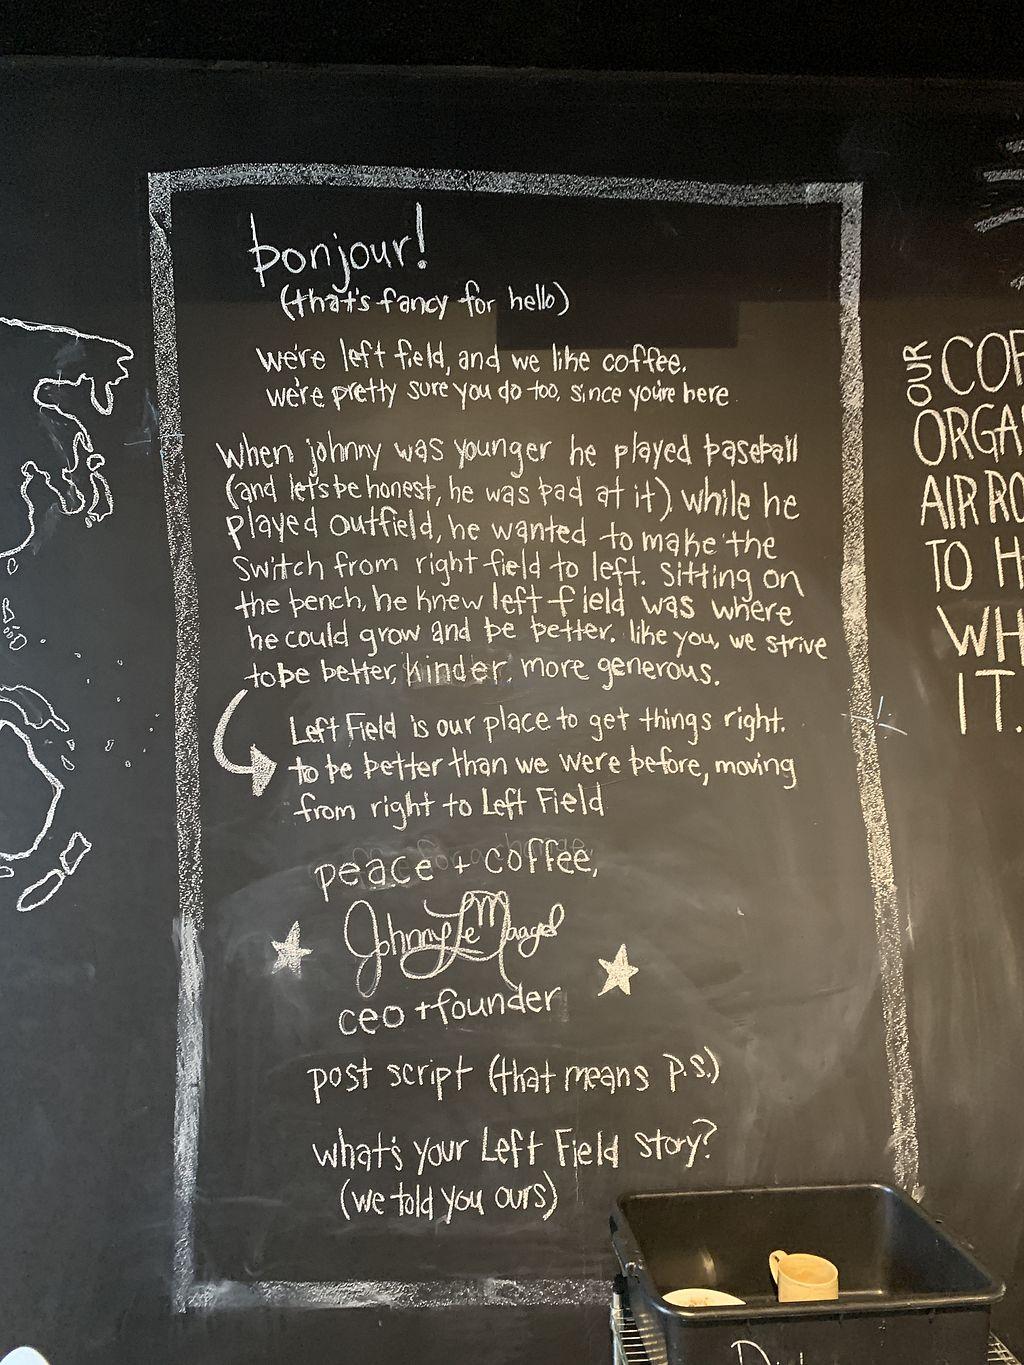 bonjour!
(that's fancy for hello)
we're left field, and we like coffee.
we're pretty sure you do too, since you're here
when johnny was younger he played baseball
(and let's be honest, he was bad at it). while he
played outfield, he wanted to make the
switch from right field to left. sitting on
the bench, he knew left field was where
he could grow and be better. like you, we strive
to be better, kinder, more generous.
Left Field is our place to get things right.
to be better than we were before, moving
from right to Left Field
peace + coffee,
Johnny Le
ceo + founder
post script (that means p.s.)
what's your Left Field story?
(we told you ours)
OUR
ORGA
AIR RO
TO H
WH
IT.